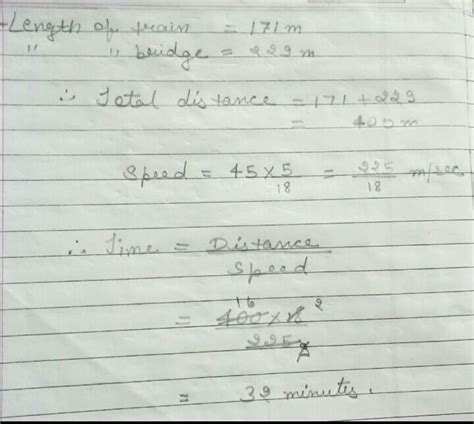 Length of train = 171 m
" " bridge = 229 m
∴ Total distance = 171 + 229
= 400 m
Speed = 45 × 5/18 = 225/18 m/sec
∴ Time = Distance/Speed
16 2
= 400 × 18
225
= 32 minutes.